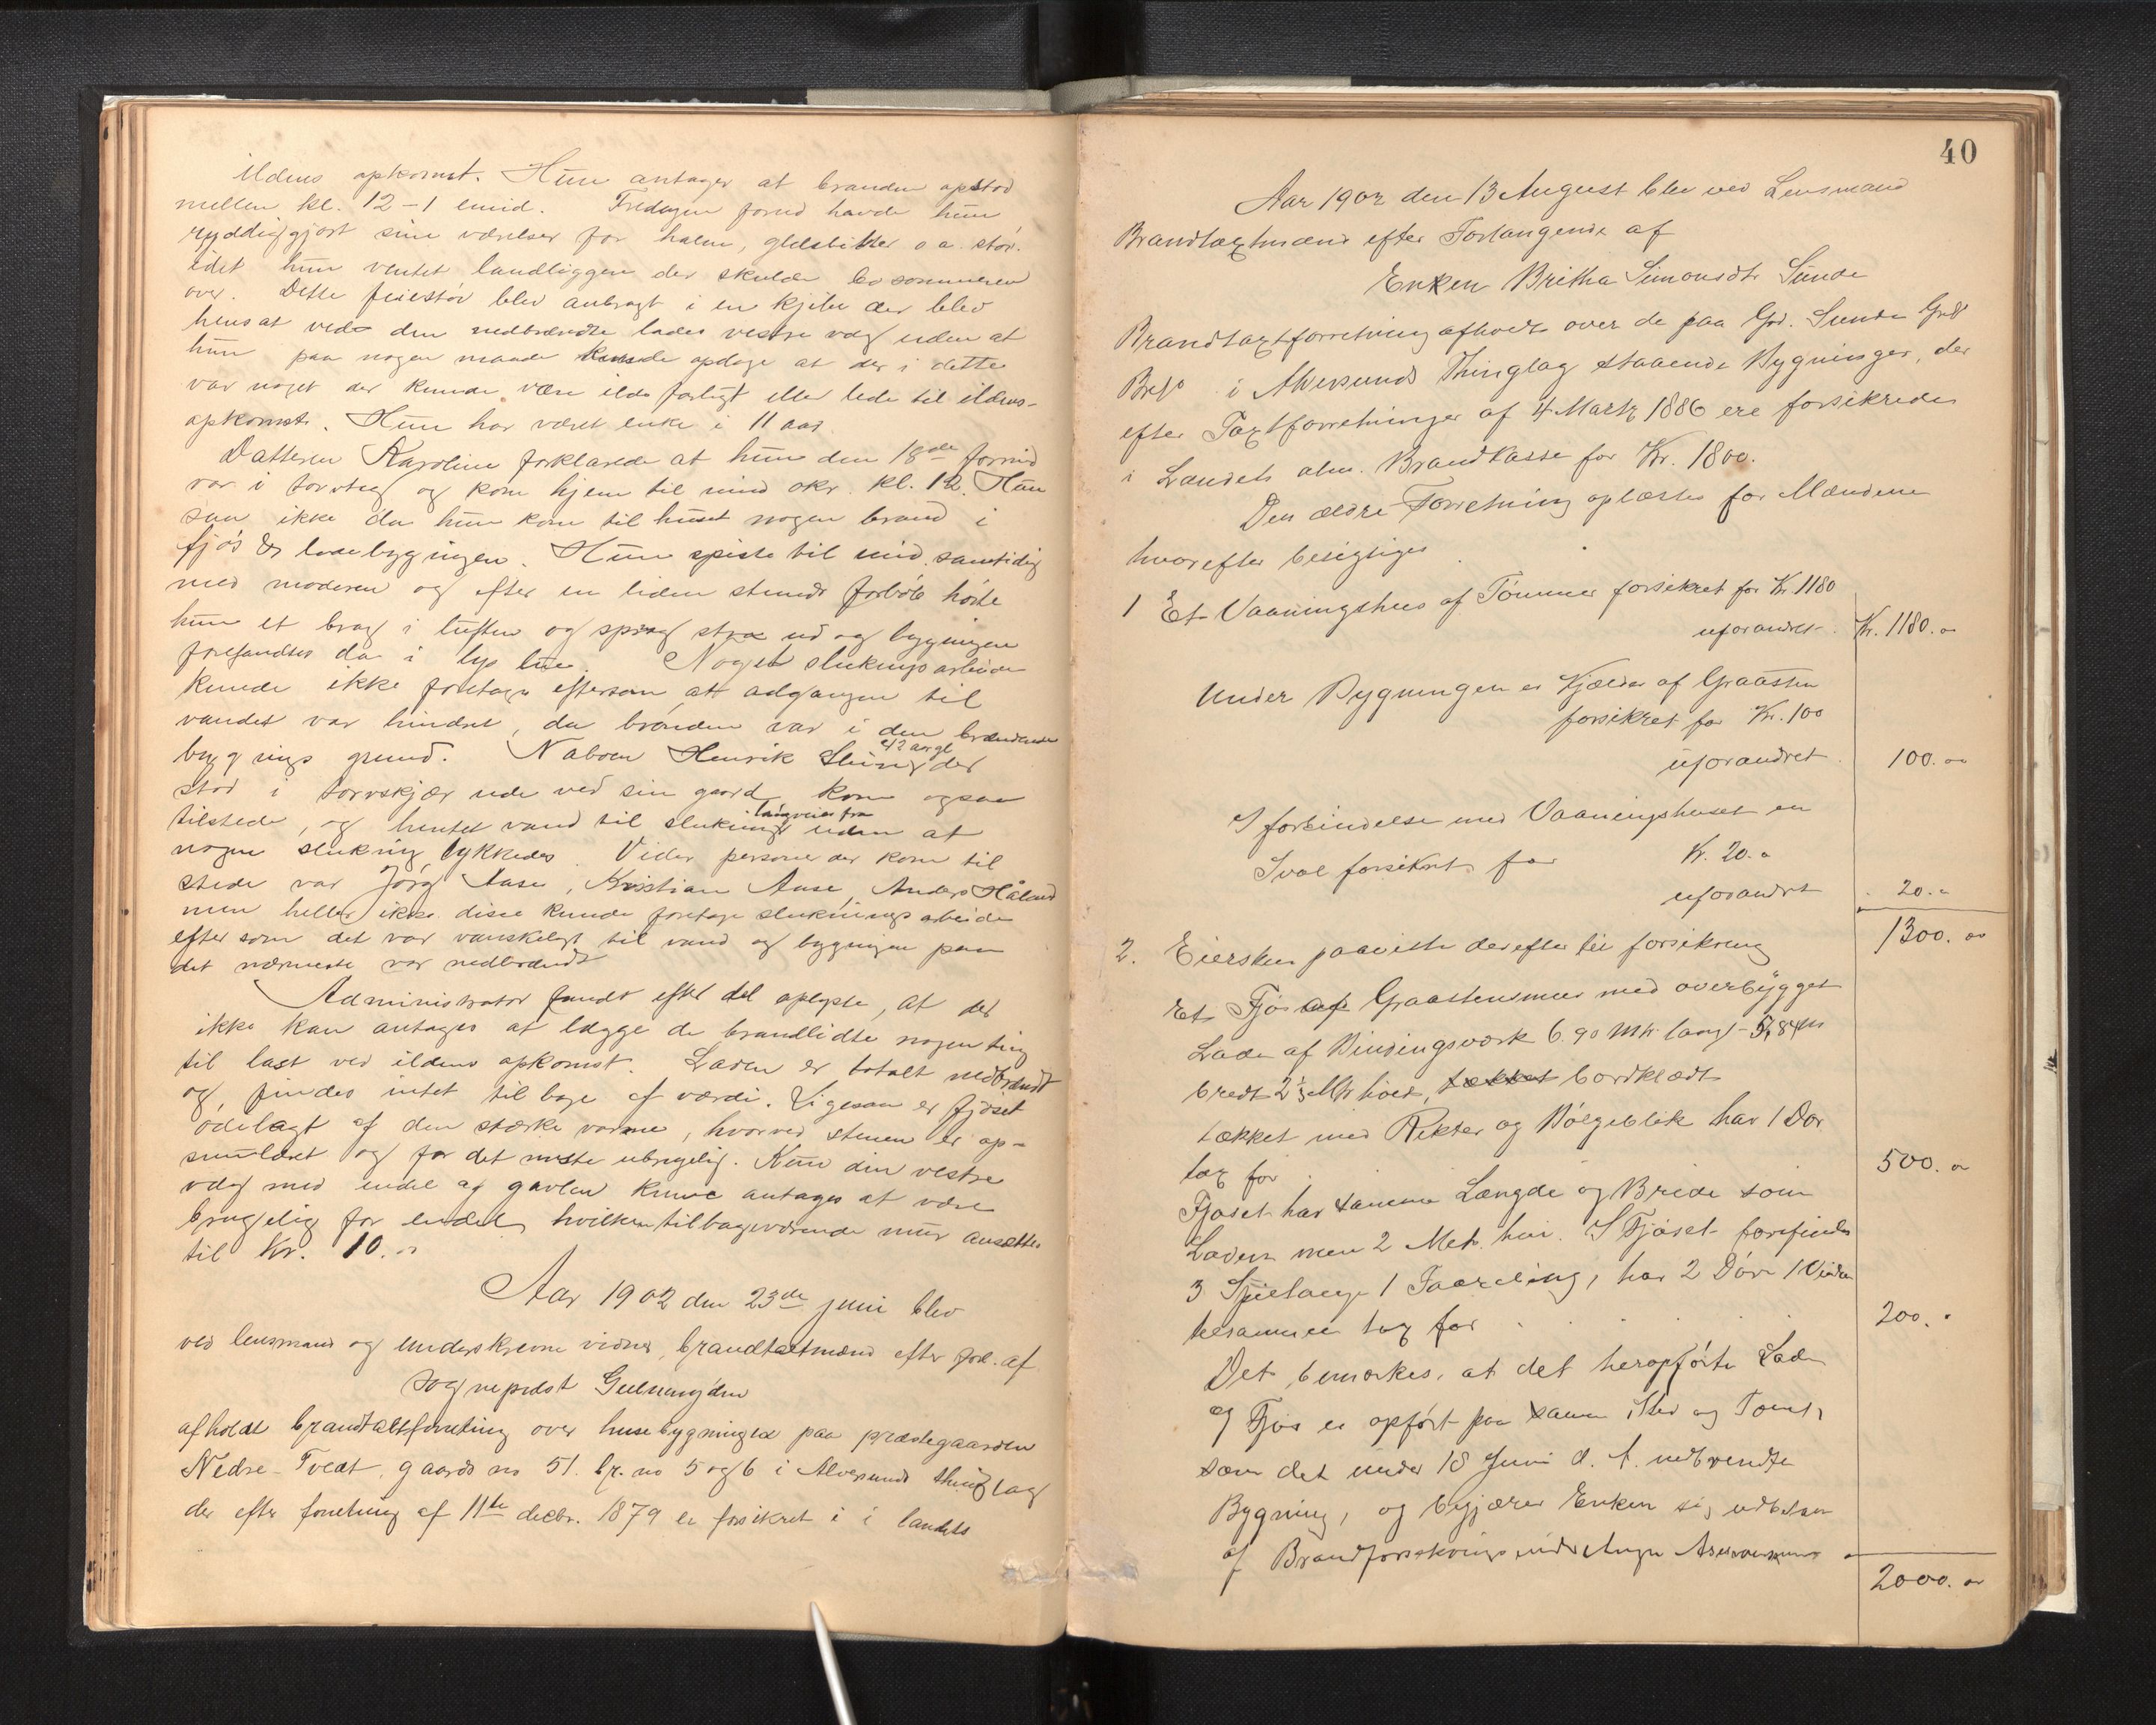 ildens opkomst. Hun antager at branden opstod
mellem kl. 12 – 1 emid. Fredagen forud havde hun
ryddiggjort sine værelser for halm, glasbitter o a. stöv.
idet hun ventet landliggere der skulde bo sommeren
over. Dette feiestöv blev anbragt i en kjibe der blev
hensat ved den nedbrændte lades vestre væg uden at
hun paa nogen maade kunde opdage at der i dette
var noget der kunde være ildsfarligt eller lede til ildens-
opkomst. Hun har været enke i 11 aar.
Datteren Karoline forklarede at hun den 18de formid
var i torvtag og kom hjem til mid okr. kl. 12. Hun
saa ikke da hun kom til huset nogen brand i
fjös & ladebygningen. Hun spiste til mid samtidig
med moderen og efter en liden stunds forlöb hörte
hun et brag i luften og sprag strax ud og bygningen
forefandtes da i lys lue. Noget slukningsarbeide
kunde ikke foretages eftersom at adgangen til
vandet var hindret, da brönden var i den brændende
bygnings grund. Naboen Henrik 42 aar gl. der
stod i torvskjær ude ved sin gaard kom ogsaa
tilstede, og hentet vand til slukning langveis fra uden at
nogen slukning lykkedes. Videre personer der kom til
stede var Jörg Aase, Kristian Aase, Anders Håland
men heller ikke disse kunde foretage slukningsarbeide
efter som det var vanskeligt til vand og bygningen paa
det nærmeste var nedbrændt
Administrator fandt efter det oplyste, at det
ikke kan antages at lægge de brandlidte nogen ting
til last ved ildens opkomst. Laden er totalt nedbrændt
og findes intet tilbage af værdi. Ligesaa er fjöset
ödelagt af den stærke varme, hvorved stenen er op-
smuldret og for det meste ubrugelig. Kun den vestre
væg med endel af gavlen kunde antages at være
brugelig for endel, hvilken tilbageværende mur ansættes
til Kr. 10.00
Aar 1902 den 23de juni blev
ved lensmand og underskrevne vidner, brandtaktmænd efter forl. af
sognepræst
afholdt brandtaktforretning over husebygningerne paa præstegaarden
Nedre-Tvedt, gaards no 51. br. no 5 og 6 i Alversunds thinglag
der efter forretning af 11te decbr. 1879 er forsikret i i landets
40
Aar 1902 den 13 August blev ved Lensmand
Brandtaxtmænd efter Forlangende af
Enken Britha Simonsdtr Sunde
Brandtaxtforretning afholdt over de paa Grd. Sunde Gno
Brno i Alversunds Thinglag staaende Bygninger, der
efter Taxtforretninger af 4 Marts 1886 ere forsikrede
i Landets alm. Brandkasse for Kr. 1800.
Den ældre Forretning oplæstes for Mændene
hvorefter besigtiges
1 Et Vaaningshus af Tømmer forsikret for Kr 1180
uforandret. Kr. 1180.00
Under Bygningen er Kjælder af Graasten
forsikret for Kr. 100
uforandret 100.00
I forbindelse med Vaaningshuset en
Sval forsikret for Kr. 20.00
uforandret 20.00
1300.00
2. Eiersken paaviste derefter til forsikring
Et Fjøs af Graastensmur med overbygget
Lade af Bindingsværk 6.90 Mtr langt – 5,84 m
bredt 2 1/3 Mtr høit, tækket bordklædt
tækket med Rekter og Bølgeblik har 1 Dør
tax for 500.00
Fjøset har samme Længde og Brede som
Laden men 2 Metr. høi. I Fjøset forefindes
3 1 , har 2 Døre 1 Vindu
tilsammen tax for 200.
Det bemærkes, at det heropførte Lade
og Fjøs er opført paa samme Sted og Tomt
som det under 18 Juni d. A. nedbrændte
Bygning, og begjærer Enken sig udbetalt
af
2000.00